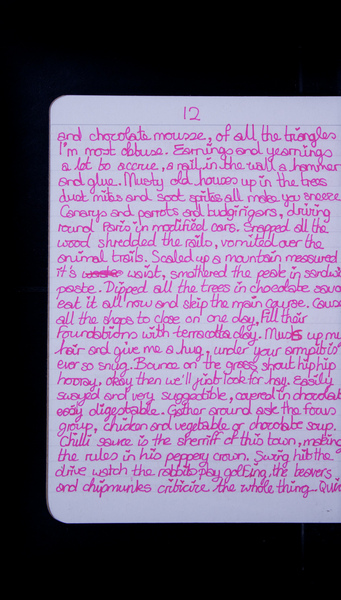 12
and chocolate mousse, of all the triangles
I'm most obtuse. Earnings and yearnings
a lot to accrue, a nail in the wall a hammer
and glue. Musty old houses up in the trees
dust mites and soot spites all make you sneeze
Canarys and parrots and budgirigars, driving
round Paris in modified cars. Snapped all the
wood shredded the rails, vomited over the
animal trails. Scaled up a mountain measured
it's waist, smothered the peak in sandwi
paste. Dipped all the trees in chocolate sauc
eat it all now and skip the main course. Cause
all the shops to close on one day, fill their
foundations with terracotta clay. Muss up my
hair and give me a hug, under your armpit is
ever so snug. Bounce on the grass, shout hip hip
hooray, okay then we'll just look for hay. Easily
swayed and very suggestible, covered in chocolat
easy digestable. Gather around ask the focus
group, chicken and vegetable or chocolate soup.
Chilli sauce is the sherriff of this town, making
the rules in his peppery crown. Swing hit the
drive watch the rabbits play golfing, the beavers
and chipmunks criticize the whole thing. Quin